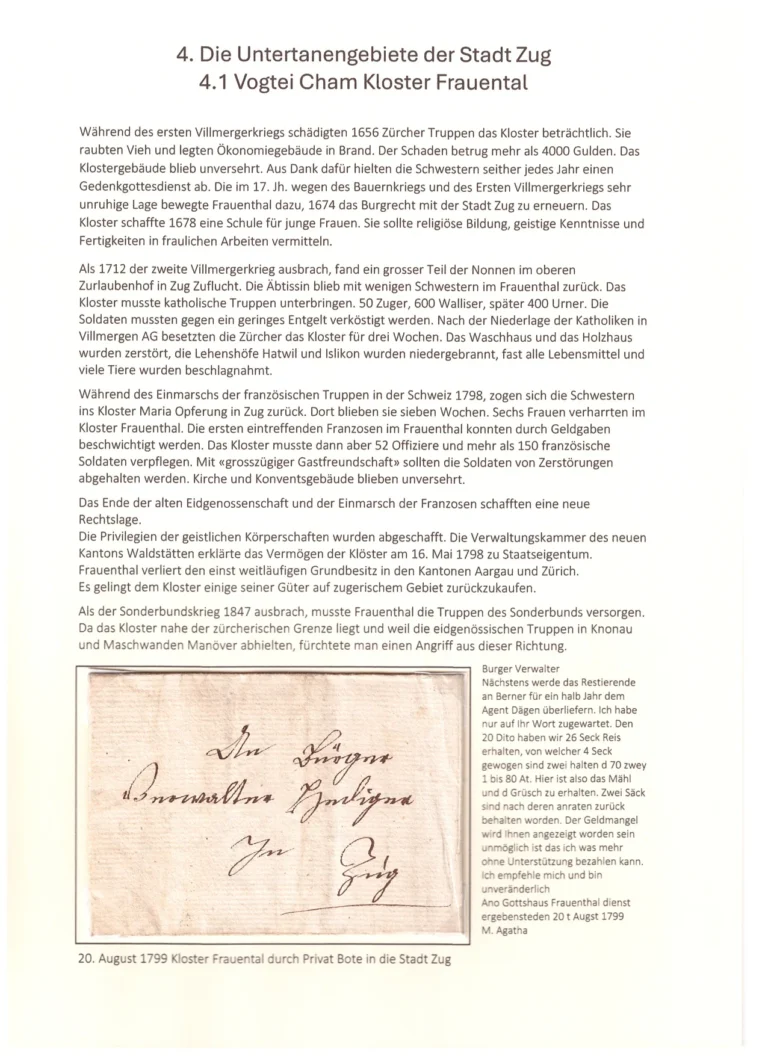 4. Die Untertanengebiete der Stadt Zug
4.1 Vogtei Cham Kloster Frauental
Während des ersten Villmergerkriegs schädigten 1656 Zürcher Truppen das Kloster beträchtlich. Sie
raubten Vieh und legten Ökonomiegebäude in Brand. Der Schaden betrug mehr als 4000 Gulden. Das
Klostergebäude blieb unversehrt. Aus Dank dafür hielten die Schwestern seither jedes Jahr einen
Gedenkgottesdienst ab. Die im 17. Jh. wegen des Bauernkriegs und des Ersten Villmergerkriegs sehr
unruhige Lage bewegte Frauenthal dazu, 1674 das Burgrecht mit der Stadt Zug zu erneuern. Das
Kloster schaffte 1678 eine Schule für junge Frauen. Sie sollte religiöse Bildung, geistige Kenntnisse und
Fertigkeiten in fraulichen Arbeiten vermitteln.
Als 1712 der zweite Villmergerkrieg ausbrach, fand ein grosser Teil der Nonnen im oberen
Zurlaubenhof in Zug Zuflucht. Die Äbtissin blieb mit wenigen Schwestern im Frauenthal zurück. Das
Kloster musste katholische Truppen unterbringen. 50 Zuger, 600 Walliser, später 400 Urner. Die
Soldaten mussten gegen ein geringes Entgelt verköstigt werden. Nach der Niederlage der Katholiken in
Villmergen AG besetzten die Zürcher das Kloster für drei Wochen. Das Waschhaus und das Holzhaus
wurden zerstört, die Lehenshöfe Hatwil und Islikon wurden niedergebrannt, fast alle Lebensmittel und
viele Tiere wurden beschlagnahmt.
Während des Einmarschs der französischen Truppen in der Schweiz 1798, zogen sich die Schwestern
ins Kloster Maria Opferung in Zug zurück. Dort blieben sie sieben Wochen. Sechs Frauen verharrten im
Kloster Frauenthal. Die ersten eintreffenden Franzosen im Frauenthal konnten durch Geldgaben
beschwichtigt werden. Das Kloster musste dann aber 52 Offiziere und mehr als 150 französische
Soldaten verpflegen. Mit «grosszügiger Gastfreundschaft» sollten die Soldaten von Zerstörungen
abgehalten werden. Kirche und Konventsgebäude blieben unversehrt.
Das Ende der alten Eidgenossenschaft und der Einmarsch der Franzosen schafften eine neue
Rechtslage.
Die Privilegien der geistlichen Körperschaften wurden abgeschafft. Die Verwaltungskammer des neuen
Kantons Waldstätten erklärte das Vermögen der Klöster am 16. Mai 1798 zu Staatseigentum.
Frauenthal verliert den einst weitläufigen Grundbesitz in den Kantonen Aargau und Zürich.
Es gelingt dem Kloster einige seiner Güter auf zugerischem Gebiet zurückzukaufen.
Als der Sonderbundskrieg 1847 ausbrach, musste Frauenthal die Truppen des Sonderbunds versorgen.
Da das Kloster nahe der zürcherischen Grenze liegt und weil die eidgenössischen Truppen in Knonau
und Maschwanden Manöver abhielten, fürchtete man einen Angriff aus dieser Richtung.
An Bürger
Verwalter Heiliger
In Zug
Burger Verwalter
Nächstens werde das Restierende
an Berner für ein halb Jahr dem
Agent Dägen überliefern. Ich habe
nur auf Ihr Wort zugewartet. Den
20 Dito haben wir 26 Seck Reis
erhalten, von welcher 4 Seck
gewogen sind zwei halten d 70 zwey
1 bis 80 At. Hier ist also das Mähl
und d Grüsch zu erhalten. Zwei Säck
sind nach deren anraten zurück
behalten worden. Der Geldmangel
wird Ihnen angezeigt worden sein
unmöglich ist das ich was mehr
ohne Unterstützung bezahlen kann.
Ich empfehle mich und bin
unveränderlich
Ano Gottshaus Frauenthal dienst
ergebensteden 20 t Augst 1799
M. Agatha
20. August 1799 Kloster Frauental durch Privat Bote in die Stadt Zug